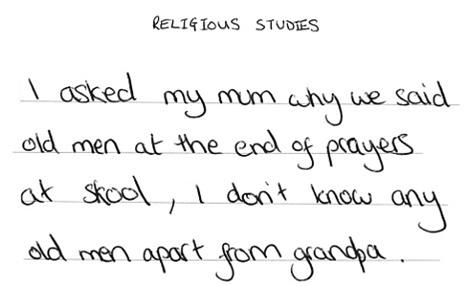 RELIGIOUS STUDIES
I asked my mum why we said
old men at the end of prayers
at skool, I don't know any
old men apart from grandpa.